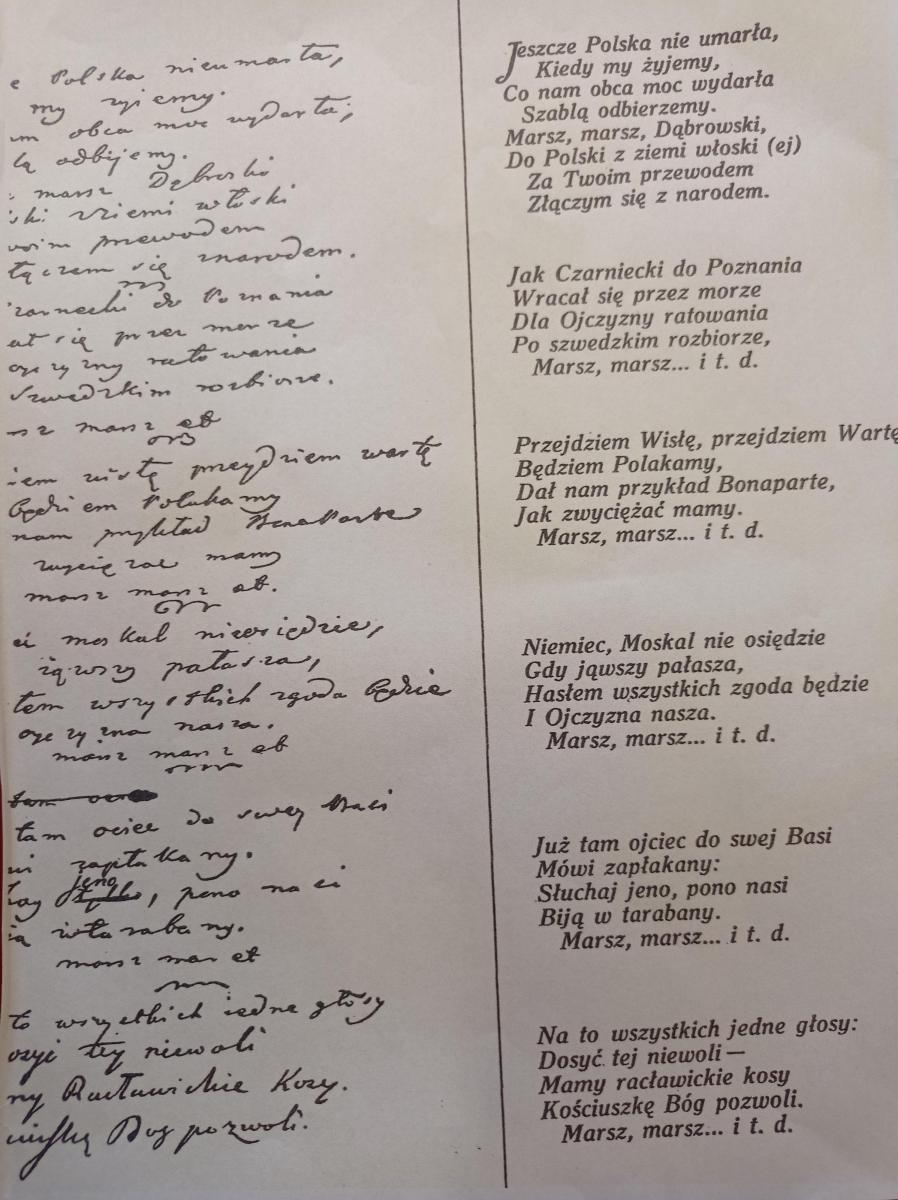 e Polska nieumarła,
my żyiemy.
m obca moc wydarła;
lą odbijemy.
marsz Dąbroski
ski zziemi włoski
woim przewodem
łączem się znarodem.
zarnecki do Poznania
ał się przez morze
oyczyzny ratowania
szwedzkim rozbiorze.
sz marsz etc
iem wisłę przeydziem wartę
będziem Polakamy
nam przykład Bonaparte
zwyciężać mamy
marsz marsz etc.
moskal nieosiędzie,
iąwszy pałasza,
łem wszystkich zgoda będzie
oyczyzna nasza.
marsz marsz etc
tam
tam ociec do swey Basi
wi zapłakany.
jeno
hay tylko, pono nasi
ią wtarabany.
marsz mar etc
to wszystkich iedne głosy
osyć tey niewoli
my Racławickie Kosy.
Bog pozwoli.
Jeszcze Polska nie umarła,
Kiedy my żyjemy,
Co nam obca moc wydarła
Szablą odbierzemy.
Marsz, marsz, Dąbrowski,
Do Polski z ziemi włoski (ej)
Za Twoim przewodem
Złączym się z narodem.
Jak Czarniecki do Poznania
Wracał się przez morze
Dla Ojczyzny ratowania
Po szwedzkim rozbiorze,
Marsz, marsz... i t. d.
Przejdziem Wisłę, przejdziem Wartę
Będziem Polakamy,
Dał nam przykład Bonaparte,
Jak zwyciężać mamy.
Marsz, marsz... i t. d.
Niemiec, Moskal nie osiędzie
Gdy jąwszy pałasza,
Hasłem wszystkich zgoda będzie
I Ojczyzna nasza.
Marsz, marsz... i t. d.
Już tam ojciec do swej Basi
Mówi zapłakany:
Słuchaj jeno, pono nasi
Biją w tarabany.
Marsz, marsz... i t. d.
Na to wszystkich jedne głosy:
Dosyć tej niewoli —
Mamy racławickie kosy
Kościuszkę Bóg pozwoli.
Marsz, marsz... i t. d.